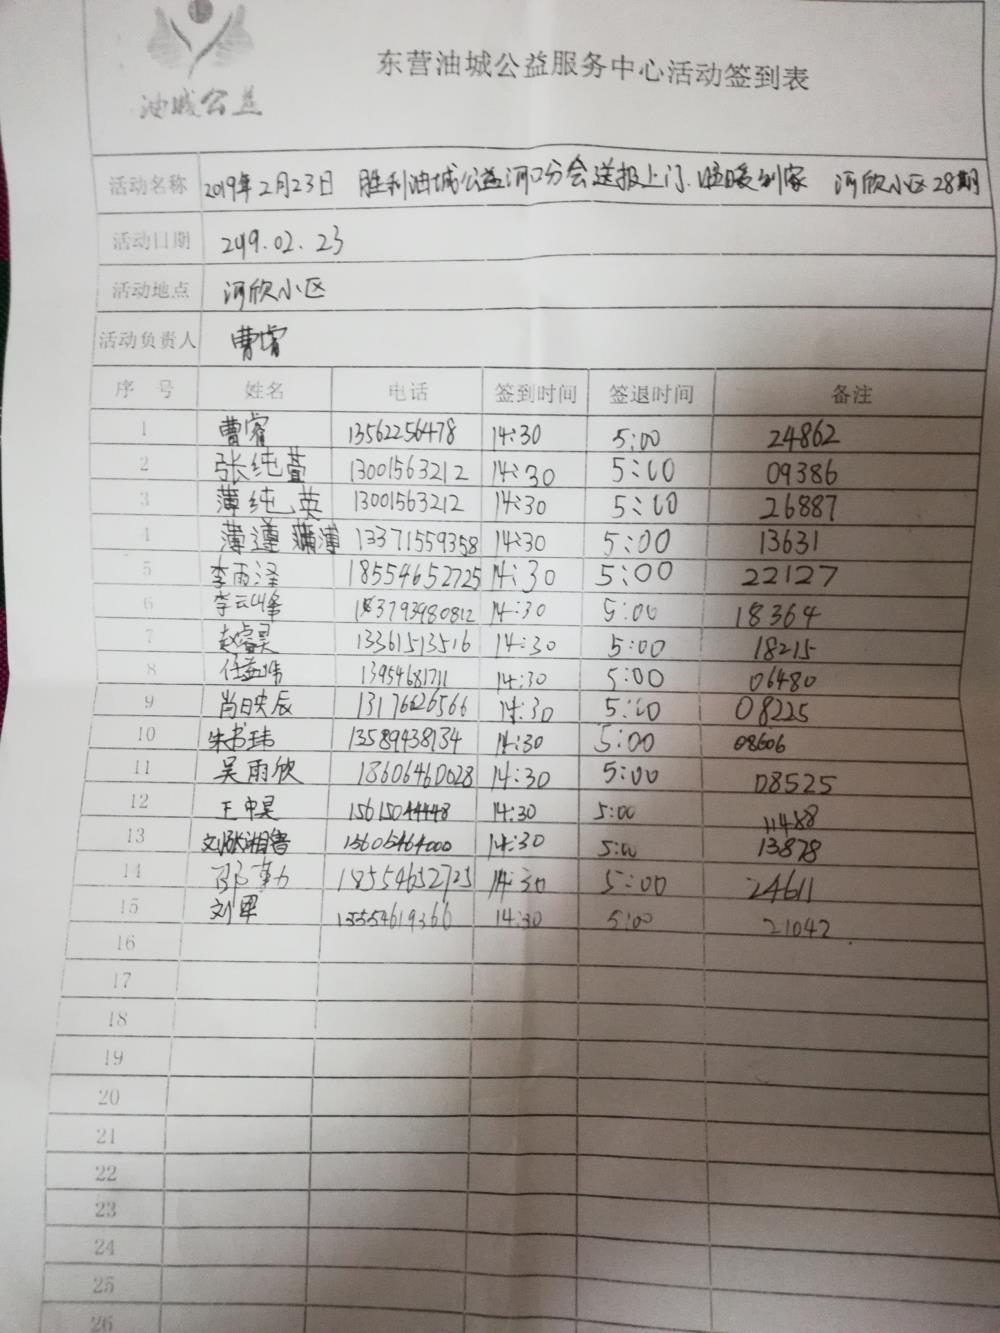 油城公益
东营油城公益服务中心活动签到表
活动名称 2019年2月23日 胜利油城公益河口分会送报上门.温暖到家 河欣小区28期
活动日期 2019.02.23
活动地点 河欣小区
活动负责人 曹睿
序号 姓名 电话 签到时间 签退时间 备注
1 曹睿 13562256478 14:30 5:00 24862
2 张纯萱 13001563212 14:30 5:00 09386
3 薄纯英 13001563212 14:30 5:00 26887
4 薄遵 13371559358 14:30 5:00 13631
5 李雨泽 18554652725 14:30 5:00 22127
6 李云峰 13793980812 14:30 5:00 18364
7 赵睿昊 13361513516 14:30 5:00 18215
8 任益伟 13954681711 14:30 5:00 06480
9 肖映辰 13176626566 14:30 5:00 08225
10 朱书玮 13589438134 14:30 5:00 08606
11 吴雨欣 18606460028 14:30 5:00 08525
12 王中昊 15615044448 14:30 5:00 11488
13 刘张湘鲁 15605464000 14:30 5:00 13878
14 邵勤 18554652725 14:30 5:00 24611
15 刘军 13554619366 14:30 5:00 21042
16
17
18
19
20
21
22
23
24
25
26